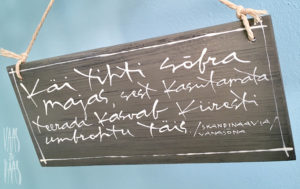 Käi tihti sõbra
majas, sest kasutamata
teerada kasvab kiiresti
umbrohtu täis. /SKANDINAAVIA
VANASÕNA/
VAAS
PAAS